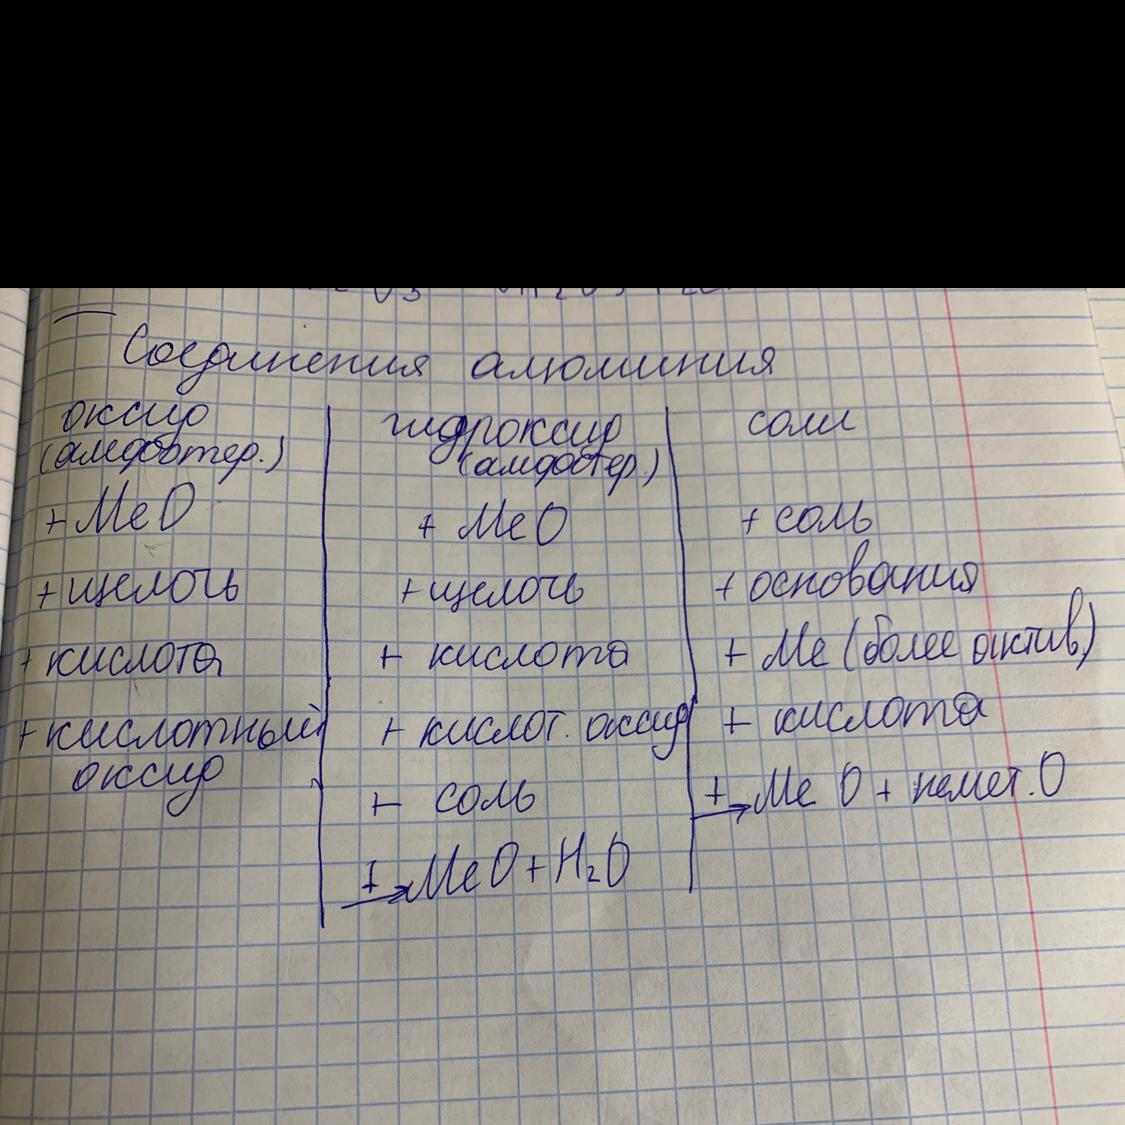 Соединения алюминия
оксид
(амфотер.)
+ MeO
+ щелочь
+ кислота
+ кислотный
оксид
гидроксид
(амфотер.)
+ MeO
+ щелочь
+ кислота
+ кислот. оксид
+ соль
t→ MeO + H₂O
соли
+ соль
+ основания
+ Me (более актив)
+ кислота
t→ Me O + немет. O